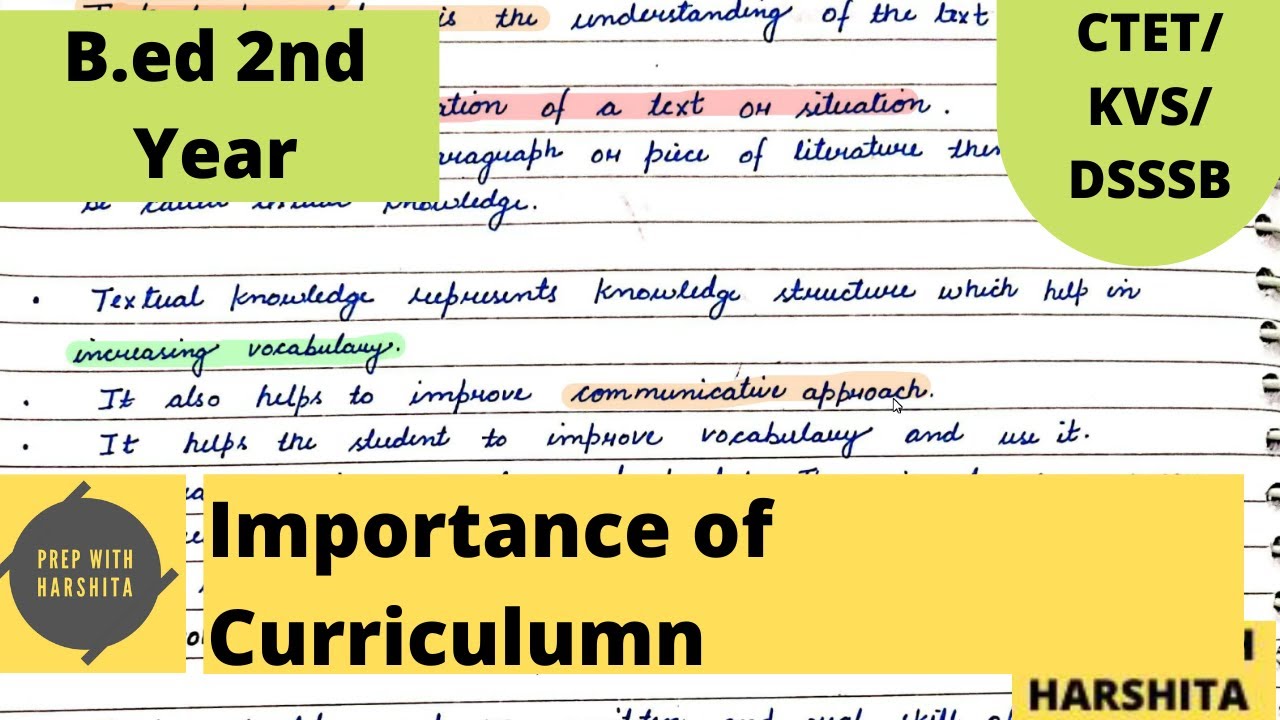 is the understanding of the text
B.ed 2nd
Year
CTET/
KVS/
DSSSB
of a text or situation.
or piece of literature
knowledge.
• Textual knowledge represents knowledge structure which help in
increasing vocabulary.
• It also helps to improve communicative approach.
• It helps the student to improve vocabulary and use it.
PREP WITH
HARSHITA
Importance of
Curriculumn
HARSHITA
and oral skill